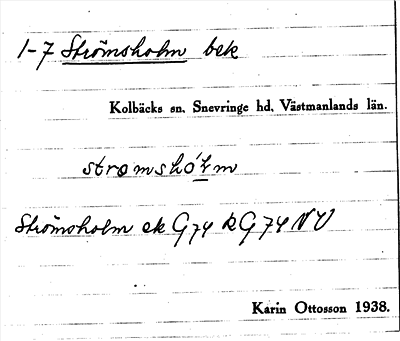 1-7 Strömsholm bek
Kolbäcks sn. Snevringe hd. Västmanlands län.
strømshó̱lm
Strömsholm ek G74 k G74 NV
Karin Ottosson 1938.